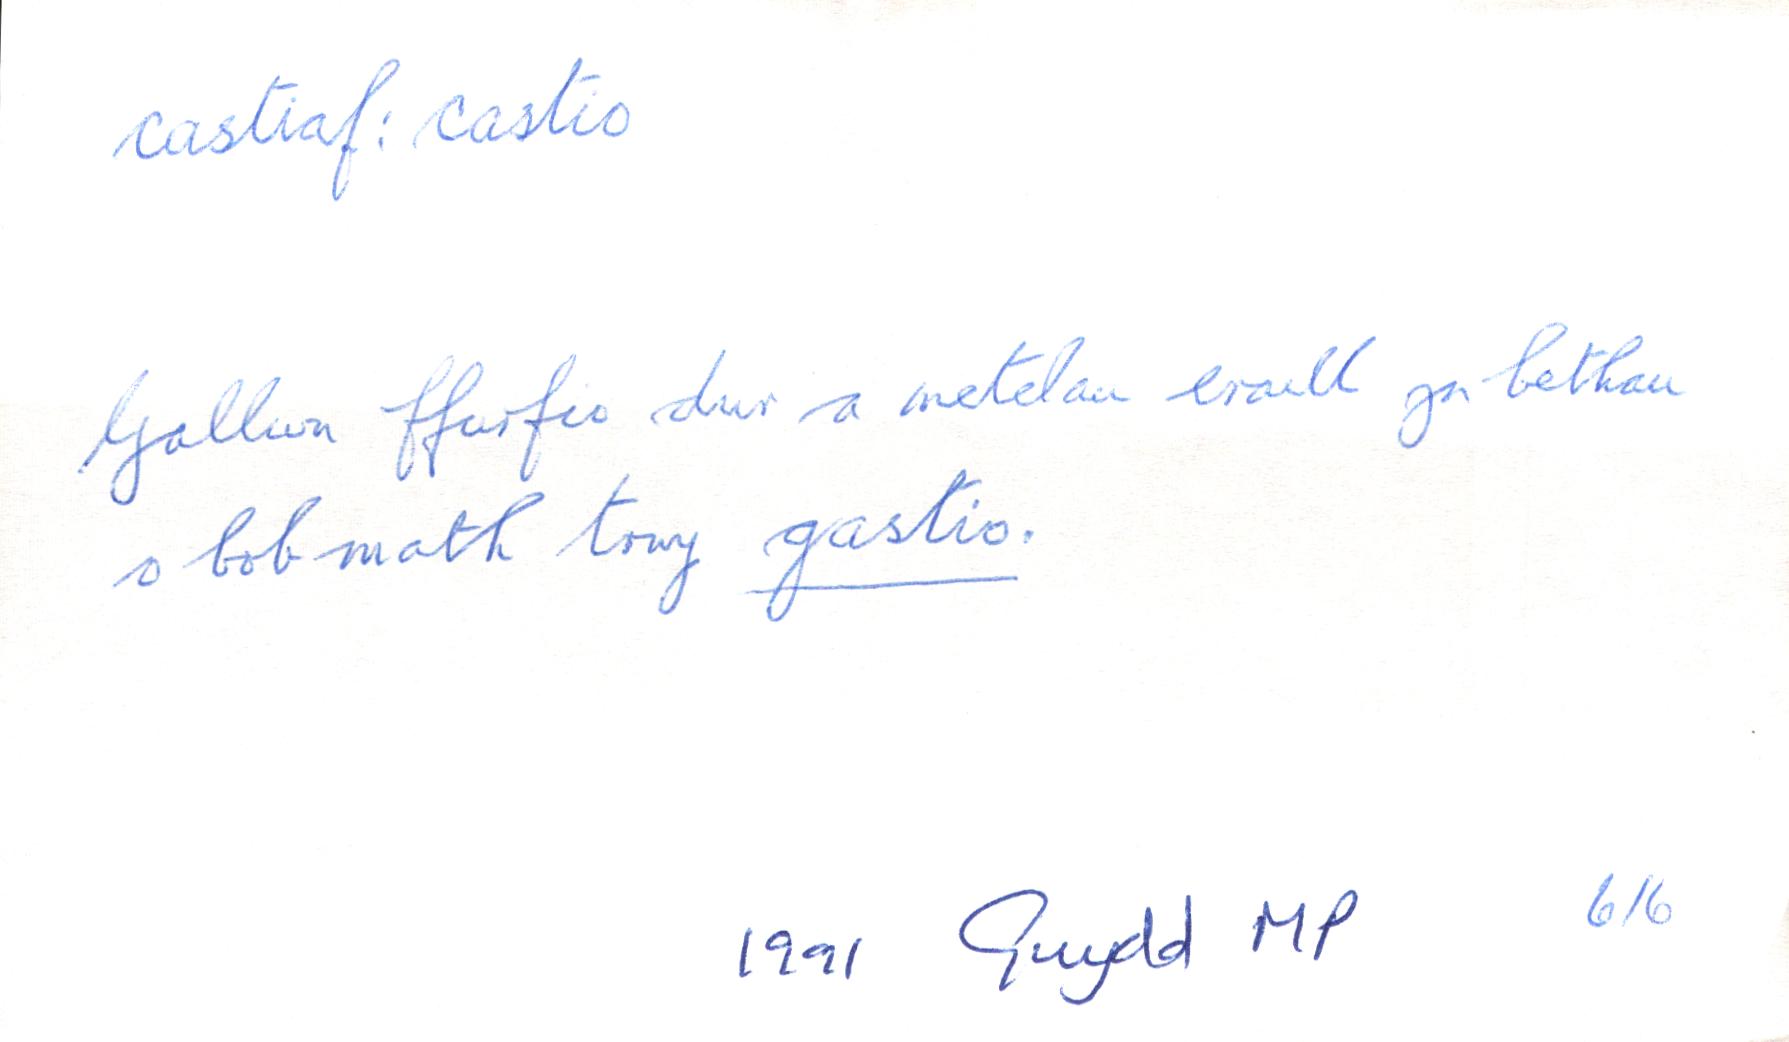 castiaf: castio
Gallwn ffurfio dur a metelau eraill yn bethau
o bob math trwy gastio.
1991 Gwydd MP 616